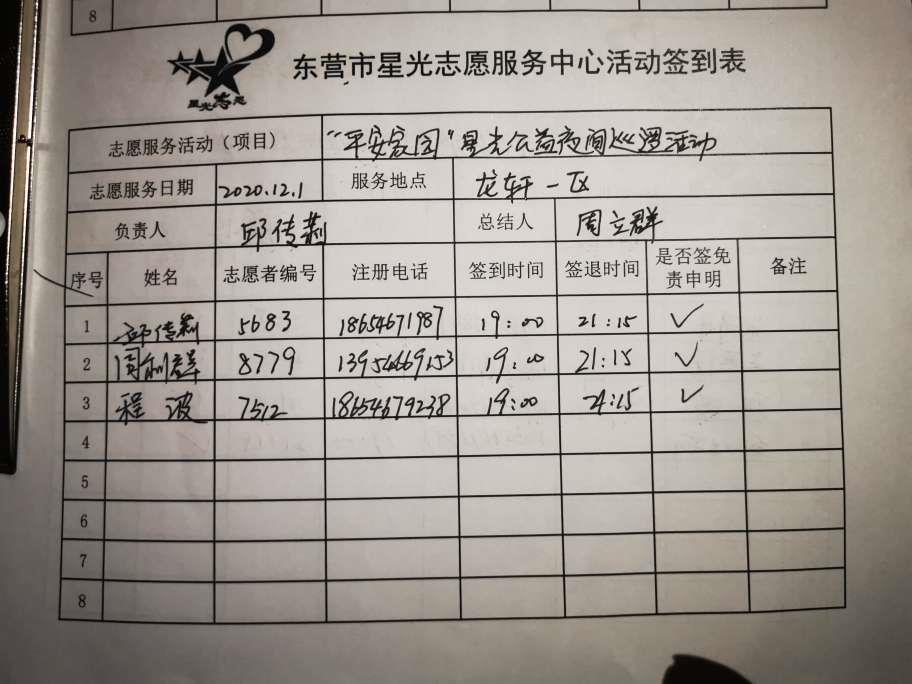 8
星光志愿
东营市星光志愿服务中心活动签到表
志愿服务活动（项目） “平安家园”星光公益夜间巡逻活动
志愿服务日期 2020.12.1 服务地点 龙轩一区
负责人 邱传莉 总结人 周立群
序号 姓名 志愿者编号 注册电话 签到时间 签退时间 是否签免责申明 备注
1 邱传莉 5683 18654671987 19:00 21:15 ✓
2 周利群 8779 13954669153 19:00 21:15 ✓
3 程波 7512 18654679238 19:00 21:15 ✓
4
5
6
7
8